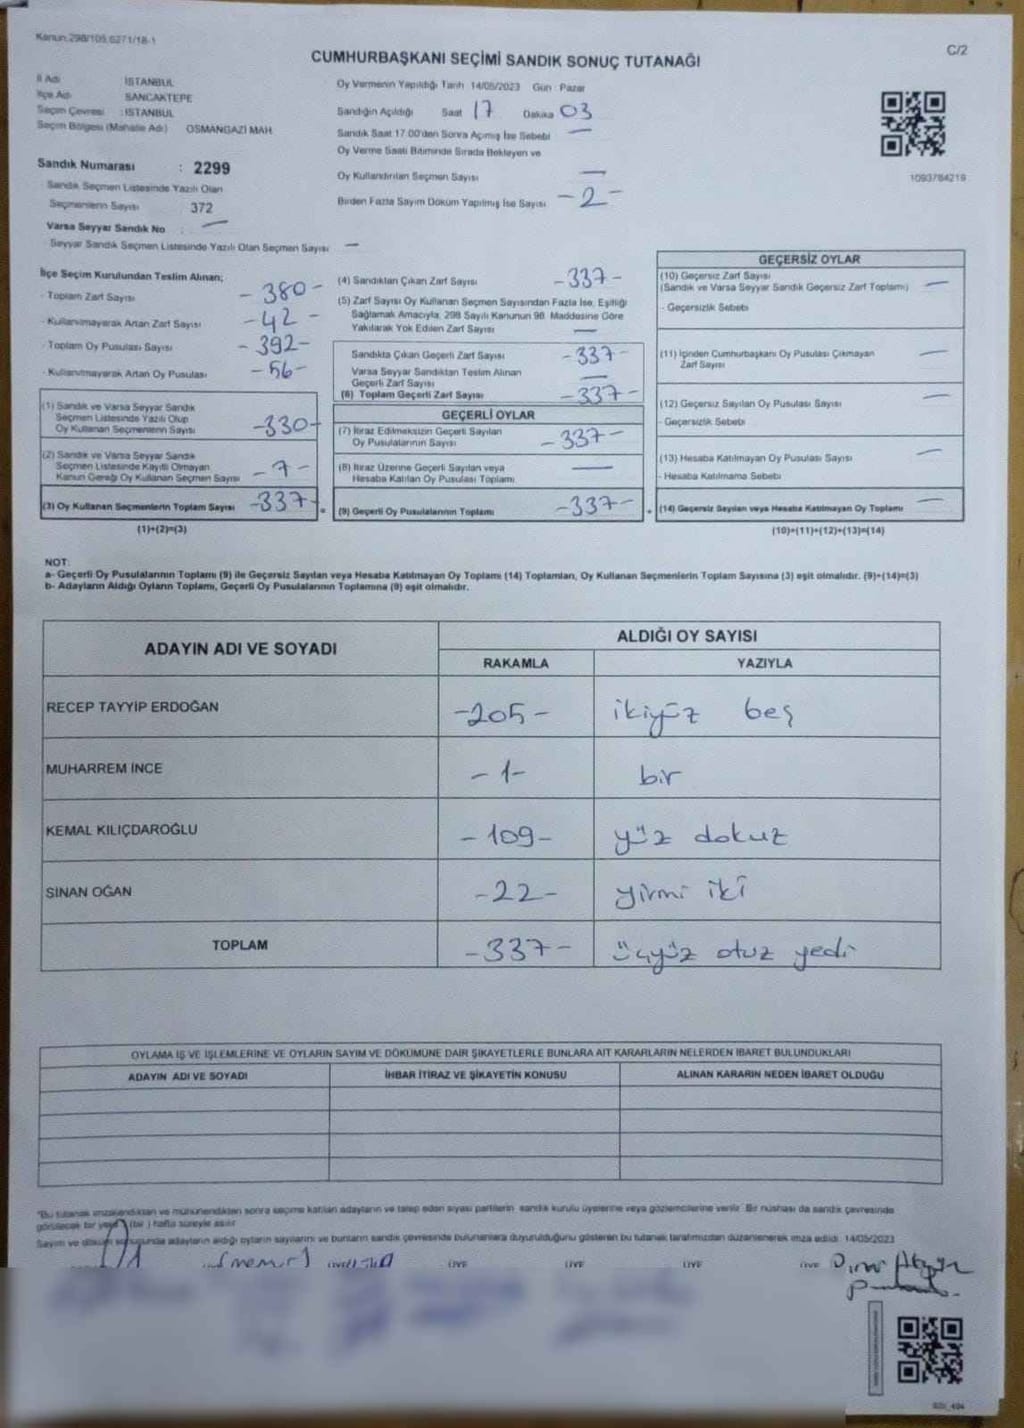 Kanun:298/105,6271/18-1
C/2
CUMHURBAŞKANI SEÇİMİ SANDIK SONUÇ TUTANAĞI
İl Adı : İSTANBUL
İlçe Adı : SANCAKTEPE
Seçim Çevresi : İSTANBUL
Seçim Bölgesi (Mahalle Adı) OSMANGAZİ MAH.
Sandık Numarası : 2299
Sandık Seçmen Listesinde Yazılı Olan
Seçmenlerin Sayısı 372
Varsa Seyyar Sandık No : —
Seyyar Sandık Seçmen Listesinde Yazılı Olan Seçmen Sayısı —
Oy Vermenin Yapıldığı Tarih 14/05/2023 Gün : Pazar
Sandığın Açıldığı Saat 17 Dakika 03
Sandık Saat 17.00'den Sonra Açılmış İse Sebebi —
Oy Verme Saati Bitiminde Sırada Bekleyen ve
Oy Kullandırılan Seçmen Sayısı —
Birden Fazla Sayım Döküm Yapılmış İse Sayısı -2-
1093784219
İlçe Seçim Kurulundan Teslim Alınan;
- Toplam Zarf Sayısı -380-
- Kullanılmayarak Artan Zarf Sayısı -42-
- Toplam Oy Pusulası Sayısı -392-
- Kullanılmayarak Artan Oy Pusulası -56-
(1) Sandık ve Varsa Seyyar Sandık
Seçmen Listesinde Yazılı Olup
Oy Kullanan Seçmenlerin Sayısı -330-
(2) Sandık ve Varsa Seyyar Sandık
Seçmen Listesinde Kayıtlı Olmayan
Kanun Gereği Oy Kullanan Seçmen Sayısı -7-
(3) Oy Kullanan Seçmenlerin Toplam Sayısı -337-
(1)+(2)=(3)
(4) Sandıktan Çıkan Zarf Sayısı -337-
(5) Zarf Sayısı Oy Kullanan Seçmen Sayısından Fazla İse, Eşitliği
Sağlamak Amacıyla, 298 Sayılı Kanunun 98. Maddesine Göre
Yakılarak Yok Edilen Zarf Sayısı —
Sandıkta Çıkan Geçerli Zarf Sayısı -337-
Varsa Seyyar Sandıktan Teslim Alınan
Geçerli Zarf Sayısı —
(6) Toplam Geçerli Zarf Sayısı -337-
GEÇERLİ OYLAR
(7) İtiraz Edilmeksizin Geçerli Sayılan
Oy Pusulalarının Sayısı -337-
(8) İtiraz Üzerine Geçerli Sayılan veya
Hesaba Katılan Oy Pusulası Toplamı —
(9) Geçerli Oy Pusulalarının Toplamı -337-
GEÇERSİZ OYLAR
(10) Geçersiz Zarf Sayısı
(Sandık ve Varsa Seyyar Sandık Geçersiz Zarf Toplamı) —
- Geçersizlik Sebebi
(11) İçinden Cumhurbaşkanı Oy Pusulası Çıkmayan
Zarf Sayısı —
(12) Geçersiz Sayılan Oy Pusulası Sayısı —
- Geçersizlik Sebebi
(13) Hesaba Katılmayan Oy Pusulası Sayısı —
- Hesaba Katılmama Sebebi
(14) Geçersiz Sayılan veya Hesaba Katılmayan Oy Toplamı —
(10)+(11)+(12)+(13)=(14)
NOT:
a- Geçerli Oy Pusulalarının Toplamı (9) ile Geçersiz Sayılan veya Hesaba Katılmayan Oy Toplamı (14) Toplamları, Oy Kullanan Seçmenlerin Toplam Sayısına (3) eşit olmalıdır. (9)+(14)=(3)
b- Adayların Aldığı Oyların Toplamı, Geçerli Oy Pusulalarının Toplamına (9) eşit olmalıdır.
ADAYIN ADI VE SOYADI
ALDIĞI OY SAYISI
RAKAMLA YAZIYLA
RECEP TAYYİP ERDOĞAN -205- ikiyüz beş
MUHARREM İNCE -1- bir
KEMAL KILIÇDAROĞLU -109- yüz dokuz
SİNAN OĞAN -22- yirmi iki
TOPLAM -337- üçyüz otuz yedi
OYLAMA İŞ VE İŞLEMLERİNE VE OYLARIN SAYIM VE DÖKÜMÜNE DAİR ŞİKAYETLERLE BUNLARA AİT KARARLARIN NELERDEN İBARET BULUNDUKLARI
ADAYIN ADI VE SOYADI İHBAR İTİRAZ VE ŞİKAYETİN KONUSU ALINAN KARARIN NEDEN İBARET OLDUĞU
"Bu tutanak imzalandıktan ve mühürlendikten sonra seçime katılan adayların ve talep eden siyasi partilerin sandık kurulu üyelerine veya gözlemcilerine verilir. Bir nüshası da sandık çevresinde
görülecek bir yere (bir ) hafta süreyle asılır.
Sayım ve döküm sonucunda adayların aldığı oyların sayılarını ve bunların sandık çevresinde bulunanlara duyurulduğunu gösteren bu tutanak tarafımızdan düzenlenerek imza edildi. 14/05/2023
ÜYE ÜYE ÜYE ÜYE